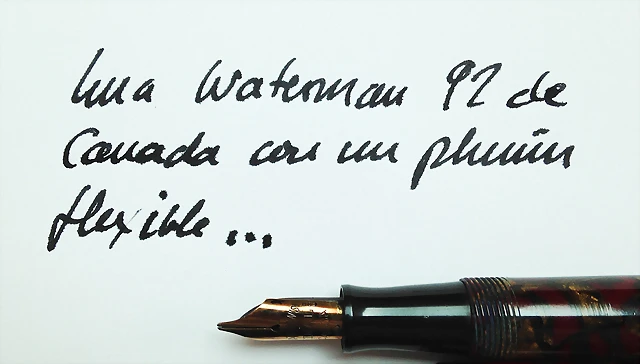 Una Waterman 92 de
Canada con un plumín
flexible...